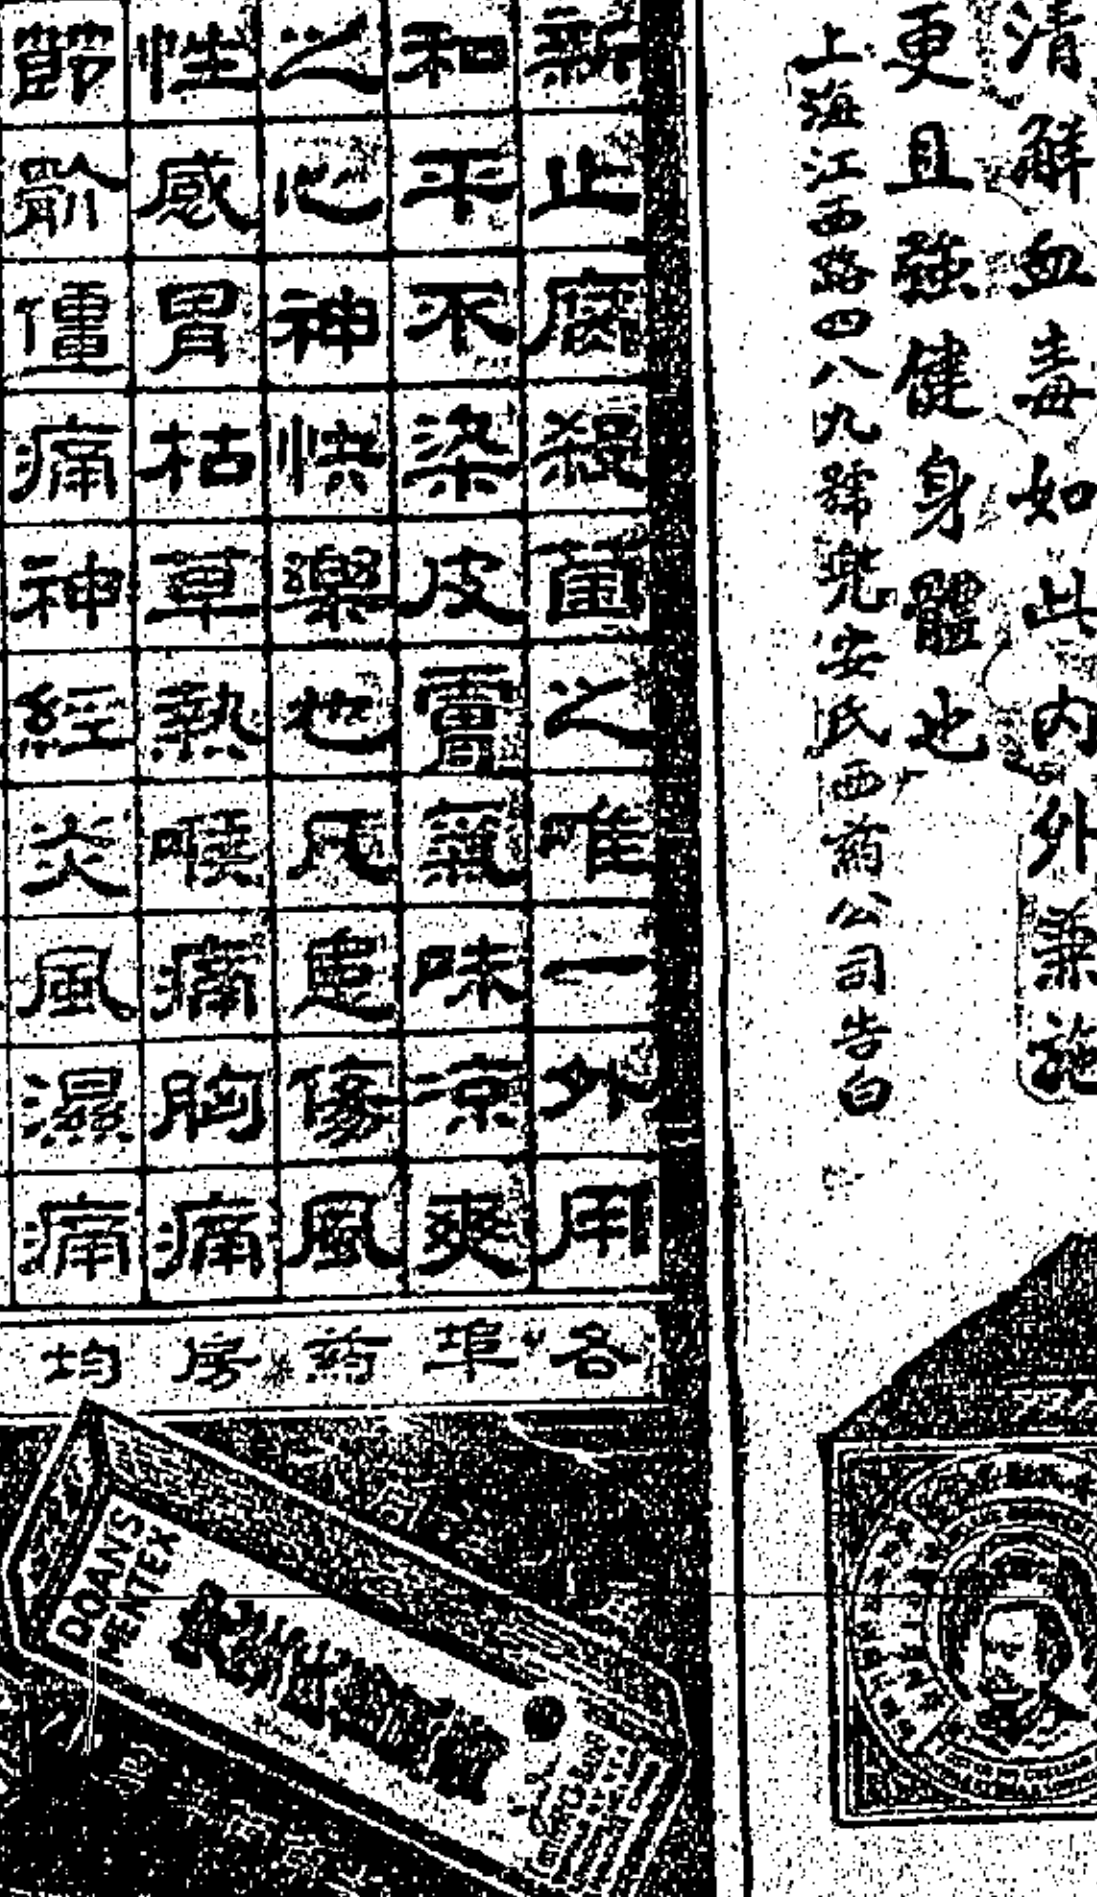 清解血毒如此內外兼施
更且強健身體也
上海江西路四八九號兜安氏西葯公司告白
新止腐殺菌之唯一外用
和平不染皮膚氣味凉爽
之心神快樂也凡患傷風
性感冒枯草熱喉痛胸痛
節骱僵痛神經炎風濕痛
各埠葯房均
DOAN'S
MENTEX